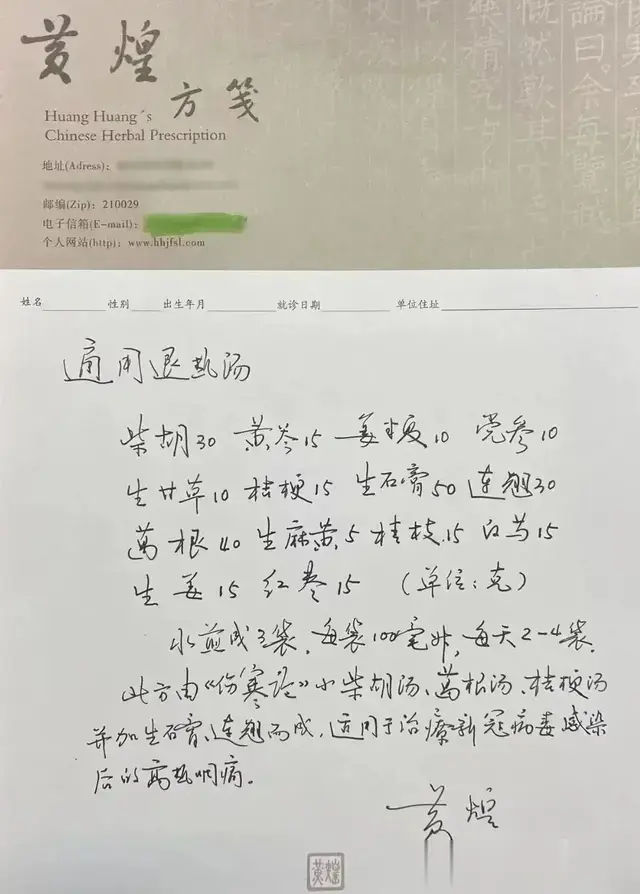 黄煌
方笺
Huang Huang´s
Chinese Herbal Prescription
地址(Adress):
邮编(Zip): 210029
电子信箱(E-mail):
个人网站(http): www.hhjfsl.com
論曰余每覽越
慨然歎其才秀
姓名 性别 出生年月 就诊日期 单位住址
通用退热汤
柴胡30 黄芩15 姜半夏10 党参10
生甘草10 桔梗15 生石膏50 连翘30
葛根40 生麻黄5 桂枝15 白芍15
生姜15 红枣15 (单位:克)
水煎成3袋,每袋100毫升,每天2-4袋。
此方由《伤寒论》小柴胡汤、葛根汤、桔梗汤
并加生石膏、连翘而成,适用于治疗新冠病毒感染
后的高热咽痛。
黄煌
黄煌